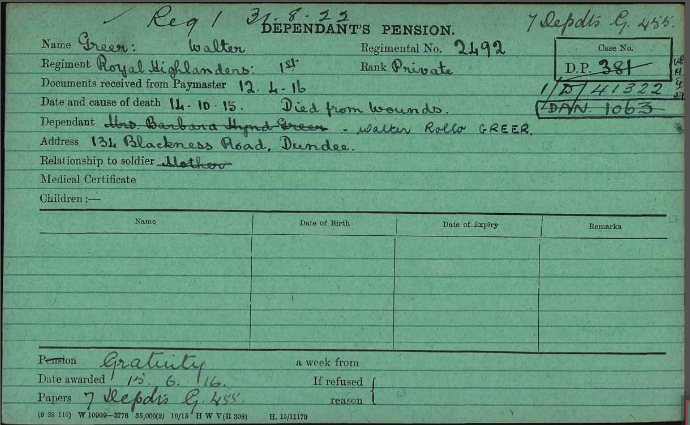 Reg 1 31.8.22
7 Depdts G. 455.
DEPENDANT'S PENSION.
Name Greer: Walter Regimental No. 2492
Case No.
Regiment Royal Highlanders: 1st Rank Private
D.P. 381
Documents received from Paymaster 12.4.16
1/D/41322
Date and cause of death 14-10-15. Died from Wounds.
DAN. 1063
Dependant Mrs. Barbara Hynd Greer - Walter Rollo GREER.
Address 134 Blackness Road, Dundee.
Relationship to soldier Mother
Medical Certificate
Children:—
Name Date of Birth Date of Expiry Remarks
Pension Gratuity a week from
Date awarded 15. 6. 16. If refused
Papers 7 Depdts G. 455. reason
(9 38 116) W 10909—3776 35,000(2) 10/15 H W V(R 308) H. 15/11179